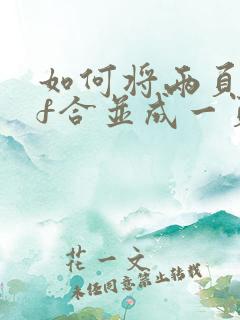 如何将两页
f合并成一
花一文
未经同意禁止转载